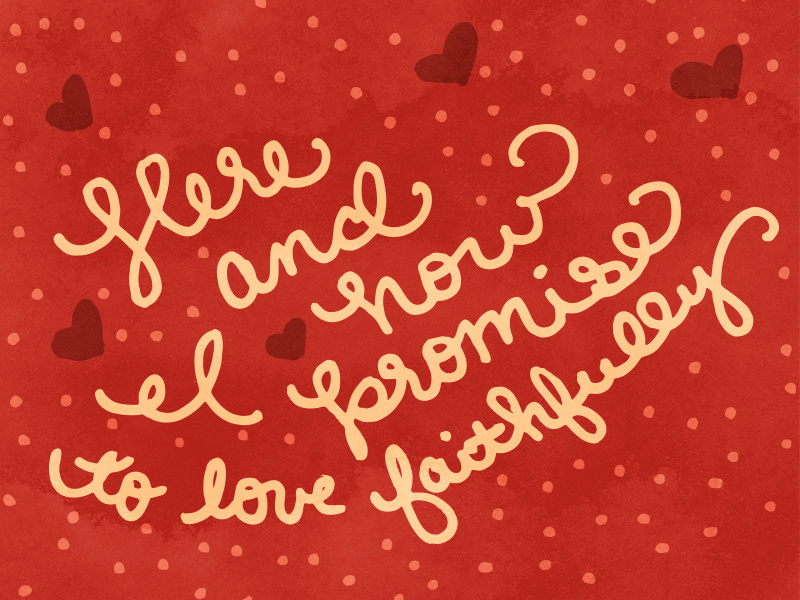 Here
and
now
I promise
to love faithfully